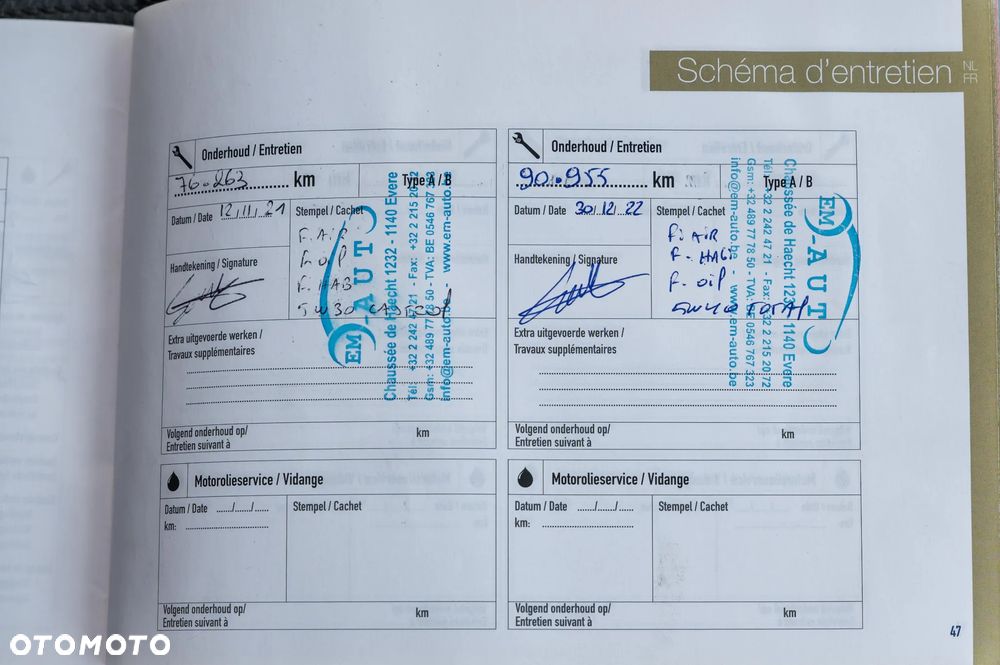 Schéma d'entretien NL
FR
Onderhoud / Entretien
76.263 km Type A / B
Datum / Date 12/11/21 Stempel / Cachet
F. AIR
Handtekening / Signature
F. HAB
5W30 CASTROL
EM-AUTO
Chaussée de Haecht 1232 - 1140 Evere
Tél: +32 2 242 47 21 - Fax: +32 2 215 20 72
Gsm: +32 489 77 78 50 - TVA: BE 0546 767 323
info@em-auto.be - www.em-auto.be
Extra uitgevoerde werken /
Travaux supplémentaires
Volgend onderhoud op/
Entretien suivant à km
Onderhoud / Entretien
90.955 km Type A / B
Datum / Date 30/12/22 Stempel / Cachet
F. AIR
Handtekening / Signature
F. HAB
5W40 TOTAL
EM-AUTO
Chaussée de Haecht 1232 - 1140 Evere
Tél: +32 2 242 47 21 - Fax: +32 2 215 20 72
Gsm: +32 489 77 78 50 - TVA: BE 0546 767 323
info@em-auto.be - www.em-auto.be
Extra uitgevoerde werken /
Travaux supplémentaires
Volgend onderhoud op/
Entretien suivant à km
Motorolieservice / Vidange
Datum / Date ....../....../...... Stempel / Cachet
km:
Volgend onderhoud op/
Entretien suivant à km
Motorolieservice / Vidange
Datum / Date ....../....../...... Stempel / Cachet
km:
Volgend onderhoud op/
Entretien suivant à km
47
OTOMOTO